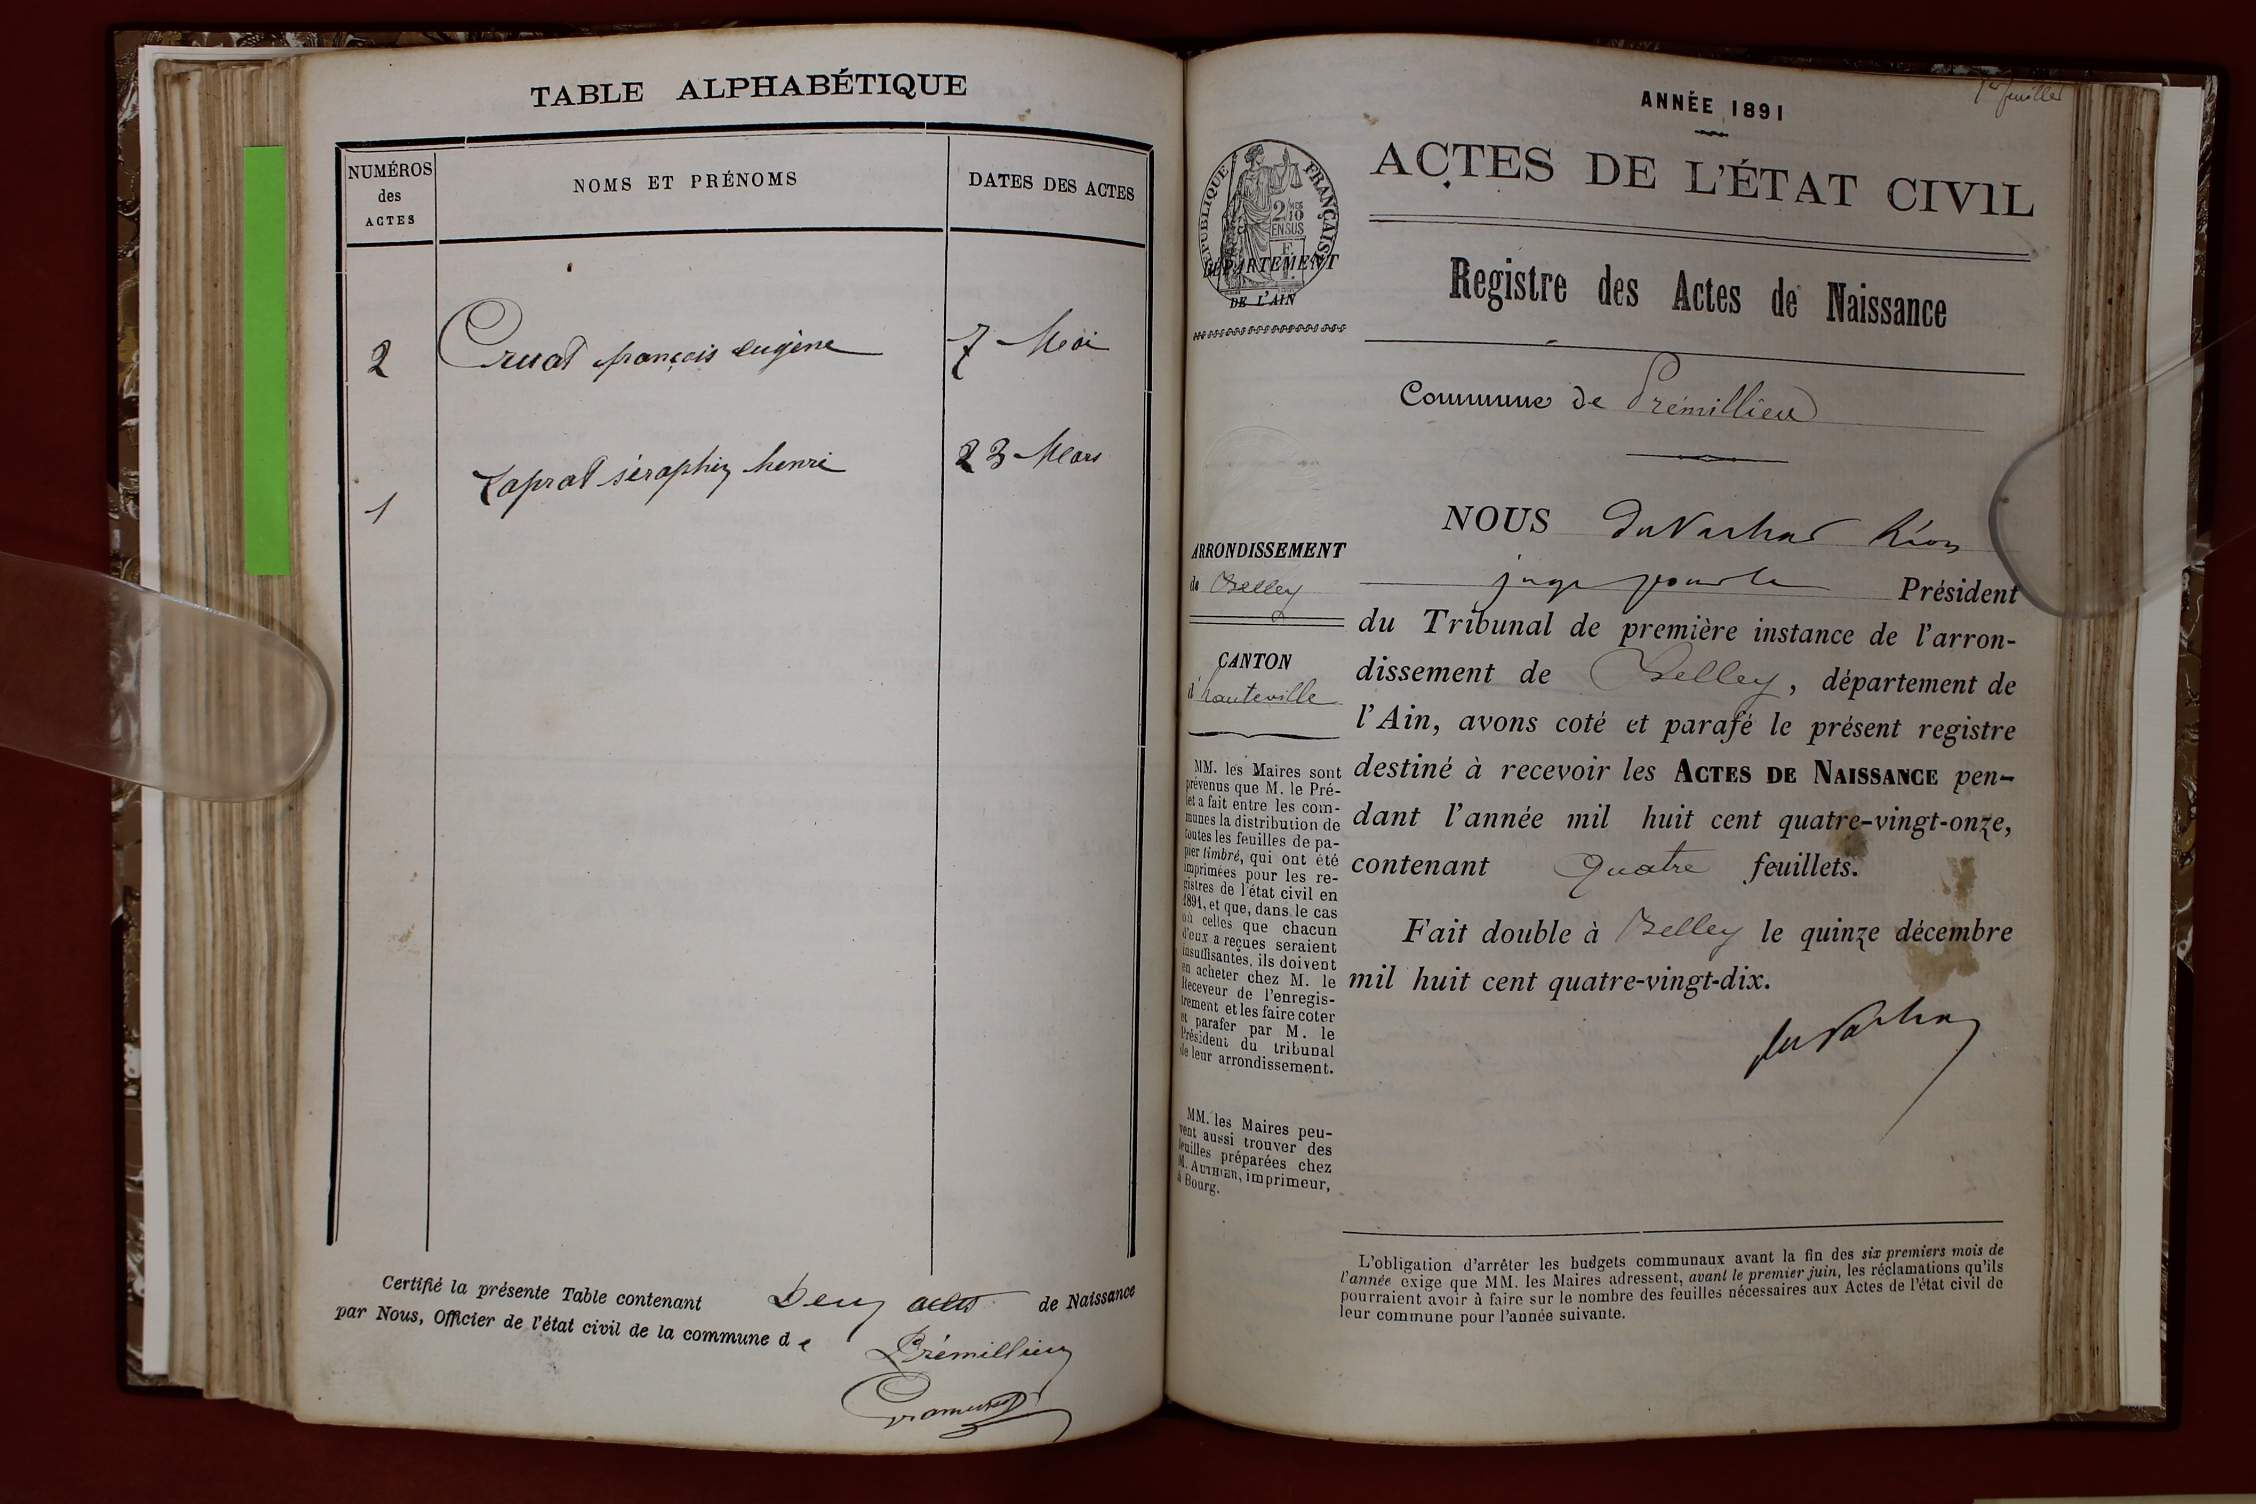 TABLE ALPHABÉTIQUE
NUMÉROS
des
ACTES
NOMS ET PRÉNOMS
DATES DES ACTES
2 Cruat françois eugène 7 Mai
1 Laprat séraphin henri 23 Mars
Certifié la présente Table contenant Deux actes de Naissance
par Nous, Officier de l'état civil de la commune de
Prémillieu
1er feuillet
ANNÉE 1891
ACTES DE L'ÉTAT CIVIL
RÉPUBLIQUE FRANÇAISE
2/10
EN SUS
DÉPARTEMENT
DE L'AIN
Registre des Actes de Naissance
Commune de Prémillieu
ARRONDISSEMENT
de Belley
CANTON
d'hauteville
MM. les Maires sont
prévenus que M. le Pré-
fet a fait entre les com-
munes la distribution de
toutes les feuilles de pa-
pier timbré, qui ont été
imprimées pour les re-
gistres de l'état civil en
1891, et que, dans le cas
où celles que chacun
d'eux a reçues seraient
insuffisantes, ils doivent
en acheter chez M. le
Receveur de l'enregis-
trement et les faire coter
et parafer par M. le
Président du tribunal
de leur arrondissement.
MM. les Maires peu-
vent aussi trouver des
feuilles préparées chez
M. AUTHIER, imprimeur,
à Bourg.
NOUS
juge pour le Président
du Tribunal de première instance de l'arron-
dissement de Belley, département de
l'Ain, avons coté et parafé le présent registre
destiné à recevoir les ACTES DE NAISSANCE pen-
dant l'année mil huit cent quatre-vingt-onze,
contenant Quatre feuillets.
Fait double à Belley le quinze décembre
mil huit cent quatre-vingt-dix.
L'obligation d'arrêter les budgets communaux avant la fin des six premiers mois de
l'année exige que MM. les Maires adressent, avant le premier juin, les réclamations qu'ils
pourraient avoir à faire sur le nombre des feuilles nécessaires aux Actes de l'état civil de
leur commune pour l'année suivante.